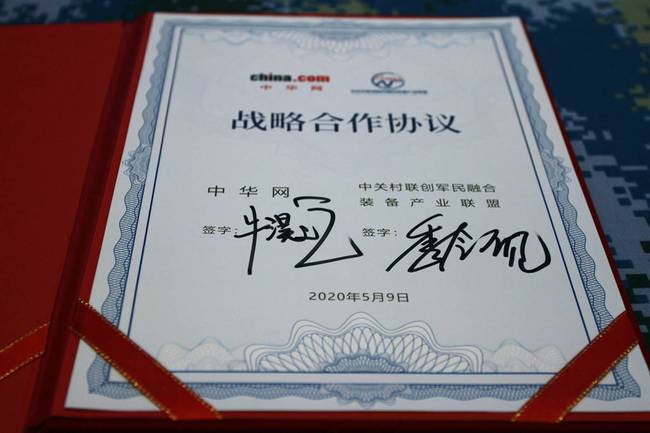 china.com
中华网
战略合作协议
中华网
中关村联创军民融合
装备产业联盟
签字：
签字：
2020年5月9日